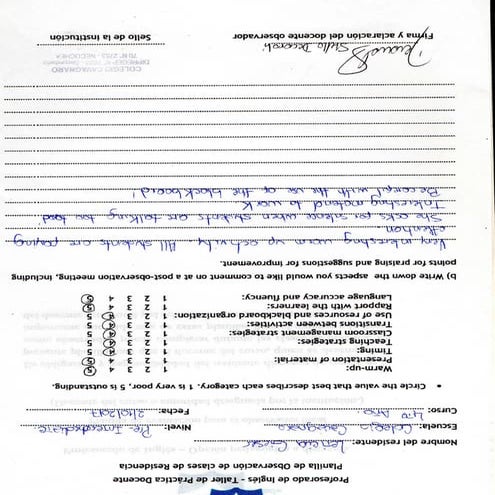 Profesorado de Inglés - Taller de Práctica Docente
Planilla de Observación de clases de Residencia
Nombre del residente:
Escuela: Colegio Nivel: Pre Intermediate
Curso: 4to Año. Fecha: 2/10/2017
• Circle the value that best describes each category. 1 is very poor, 5 is outstanding.
Warm-up: 1 2 3 4 5
Presentation of material: 1 2 3 4 5
Timing: 1 2 3 4 5
Teaching strategies: 1 2 3 4 5
Classroom management strategies: 1 2 3 4 5
Transitions between activities: 1 2 3 4 5
Use of resources and blackboard organization: 1 2 3 4 5
Rapport with the learners: 1 2 3 4 5
Language accuracy and fluency: 1 2 3 4 5
b) Write down the aspects you would like to comment on at a post-observation meeting, including
points for praising and suggestions for improvement.
Very interesting warm up activity. All students are paying
attention
She asks for silence when students are talking too loud.
Interesting material to work
Be careful with the use of the blackboard!
COLEGIO CAVAGNARO
NECOCHEA
Firma y aclaración del docente observador Sello de la institución